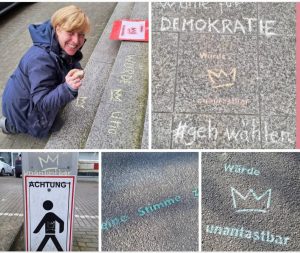 Würde
DEMOKRATIE
Würde
unantastbar
#geh wählen
ACHTUNG
eine Stimme
Würde
unantastbar